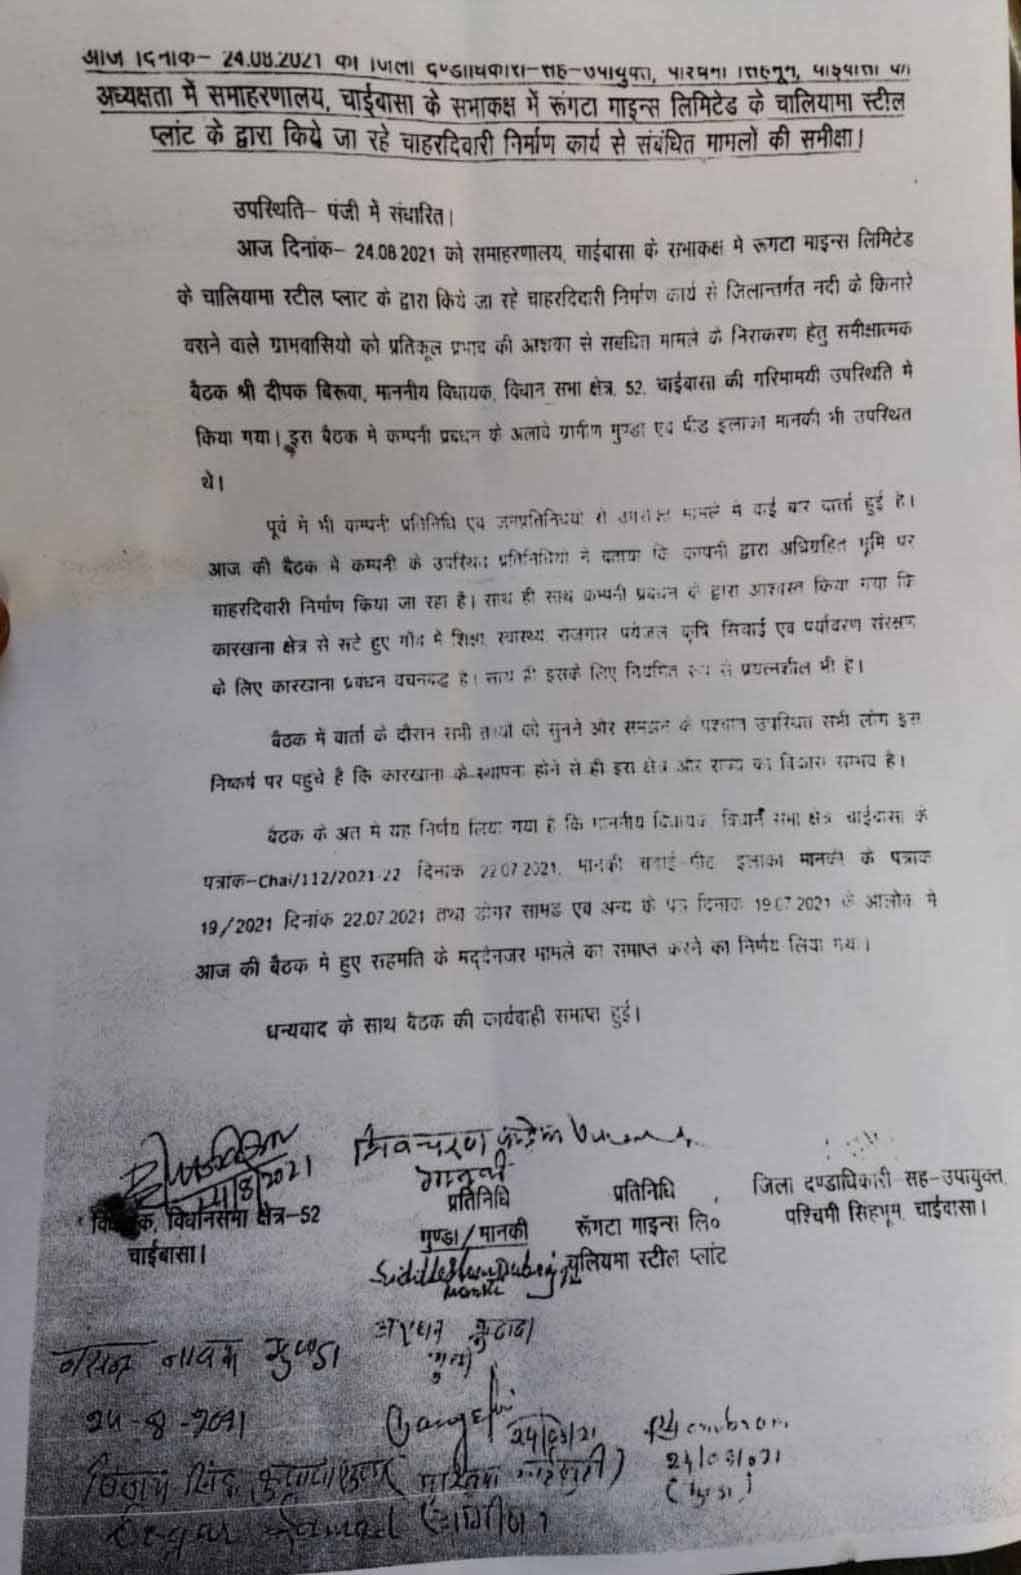 आज दिनांक- 24.08.2021 को जिला दण्डाधिकारी-सह-उपायुक्त, पश्चिमी सिंहभूम, चाईबासा की
अध्यक्षता में समाहरणालय, चाईबासा के सभाकक्ष में रूंगटा माइन्स लिमिटेड के चालियामा स्टील
प्लांट के द्वारा किये जा रहे चाहरदिवारी निर्माण कार्य से संबंधित मामलों की समीक्षा।
उपस्थिति- पंजी में संधारित।
आज दिनांक- 24.08.2021 को समाहरणालय, चाईबासा के सभाकक्ष मे रूंगटा माइन्स लिमिटेड
के चालियामा स्टील प्लाट के द्वारा किये जा रहे चाहरदिवारी निर्माण कार्य से जिलान्तर्गत नदी के किनारे
बसने वाले ग्रामवासियो को प्रतिकूल प्रभाव की आशका से सबधित मामले के निराकरण हेतु समीक्षात्मक
बैठक श्री दीपक बिरूवा, माननीय विधायक, विधान सभा क्षेत्र, 52, चाईबासा की गरिमामयी उपस्थिति मे
किया गया। इस बैठक मे कम्पनी प्रबधन के अलावे ग्रामीण मुण्डा एव पीड इलाका मानकी भी उपस्थित
थे।
पूर्व मे भी कम्पनी प्रतिनिधि एव जनप्रतिनिधियों से उपरोक्त मामले मे कई बार वार्ता हुई है।
आज की बैठक मे कम्पनी के उपस्थित प्रतिनिधियो ने बताया कि कम्पनी द्वारा अधिग्रहित भूमि पर
चाहरदिवारी निर्माण किया जा रहा है। साथ ही साथ कम्पनी प्रबधन के द्वारा आश्वस्त किया गया कि
कारखाना क्षेत्र से सटे हुए गाँव मे शिक्षा, स्वास्थ्य, रोजगार पेयजल कृषि सिचाई एव पर्यावरण संरक्षण
के लिए कारखाना प्रबंधन वचनबद्ध है। साथ ही इसके लिए नियमित रूप से प्रयत्नशील भी है।
बैठक में वार्ता के दौरान सभी तथ्यो को सुनने और समझने के पश्चात उपस्थित सभी लोग इस
निष्कर्ष पर पहुंचे है कि कारखाना के स्थापना होने से ही इस क्षेत्र और राज्य का विकास सम्भव है।
बैठक के अत मे यह निर्णय लिया गया है कि माननीय विधायक, विधान सभा क्षेत्र चाईबासा के
पत्रांक-Chai/112/2021-22 दिनाक 22.07.2021, मानकी पीट इलाका मानकी के पत्राक
19/2021 दिनांक 22.07.2021 तथा डोगर सामड एव अन्य के पत्र दिनाक 19.07.2021 के आलोक मे
आज की बैठक मे हुए सहमति के मद्देनजर मामले का समाप्त करने का निर्णय लिया गया।
धन्यवाद के साथ बैठक की कार्यवाही समाप्त हुई।
शिवचरण
24/8/2021
मानकी
विधायक, विधानसभा क्षेत्र-52
चाईबासा।
प्रतिनिधि
मुण्डा/मानकी
प्रतिनिधि
रूँगटा माइन्स लि०
चलियमा स्टील प्लांट
जिला दण्डाधिकारी-सह-उपायुक्त,
पश्चिमी सिहभूम, चाईबासा।
नायक मुण्डा
24-8-2021
24/08/21
24/08/21